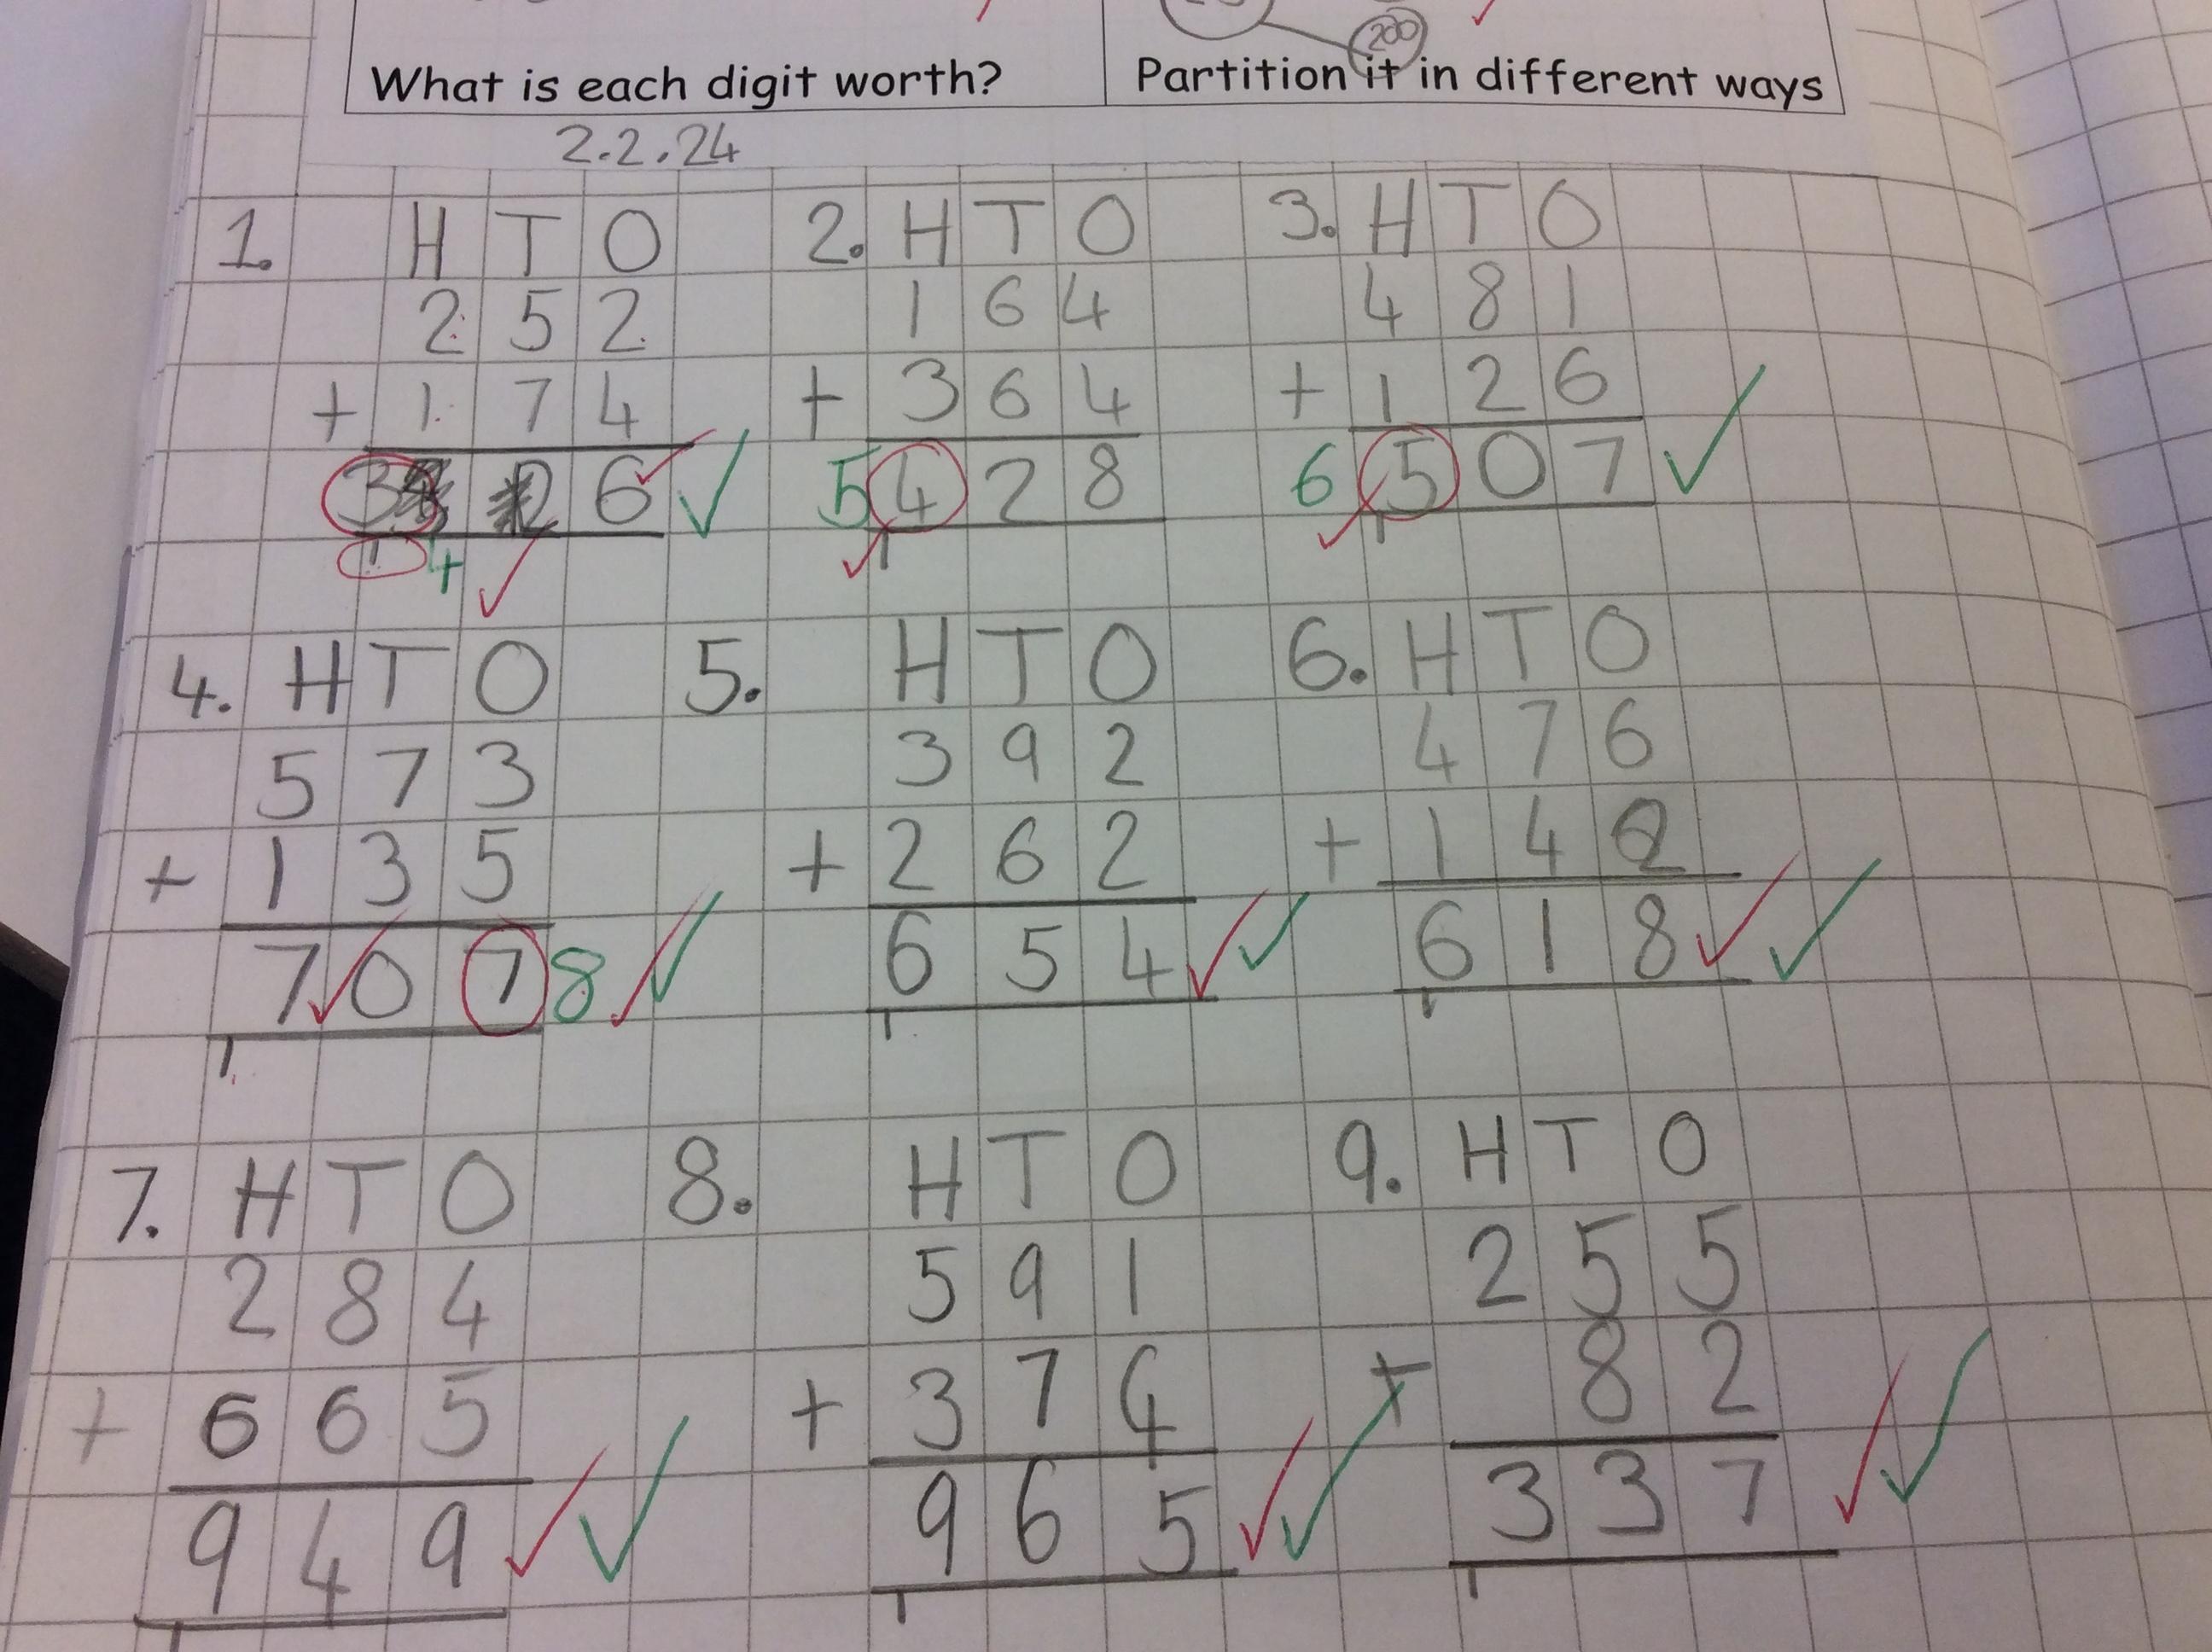 200
What is each digit worth?
Partition it in different ways
2.2.24
1. H T O
2 5 2
+ 1 7 4
3 2 6
1 4
2. H T O
1 6 4
+ 3 6 4
5 4 2 8
1
3. H T O
4 8 1
+ 1 2 6
6 5 0 7
1
4. H T O
5 7 3
+ 1 3 5
7 0 7 8
1
5. H T O
3 9 2
+ 2 6 2
6 5 4
1
6. H T O
4 7 6
+ 1 4 2
6 1 8
1
7. H T O
2 8 4
+ 6 6 5
9 4 9
1
8. H T O
5 9 1
+ 3 7 4
9 6 5
1
9. H T O
2 5 5
+ 8 2
3 3 7
1